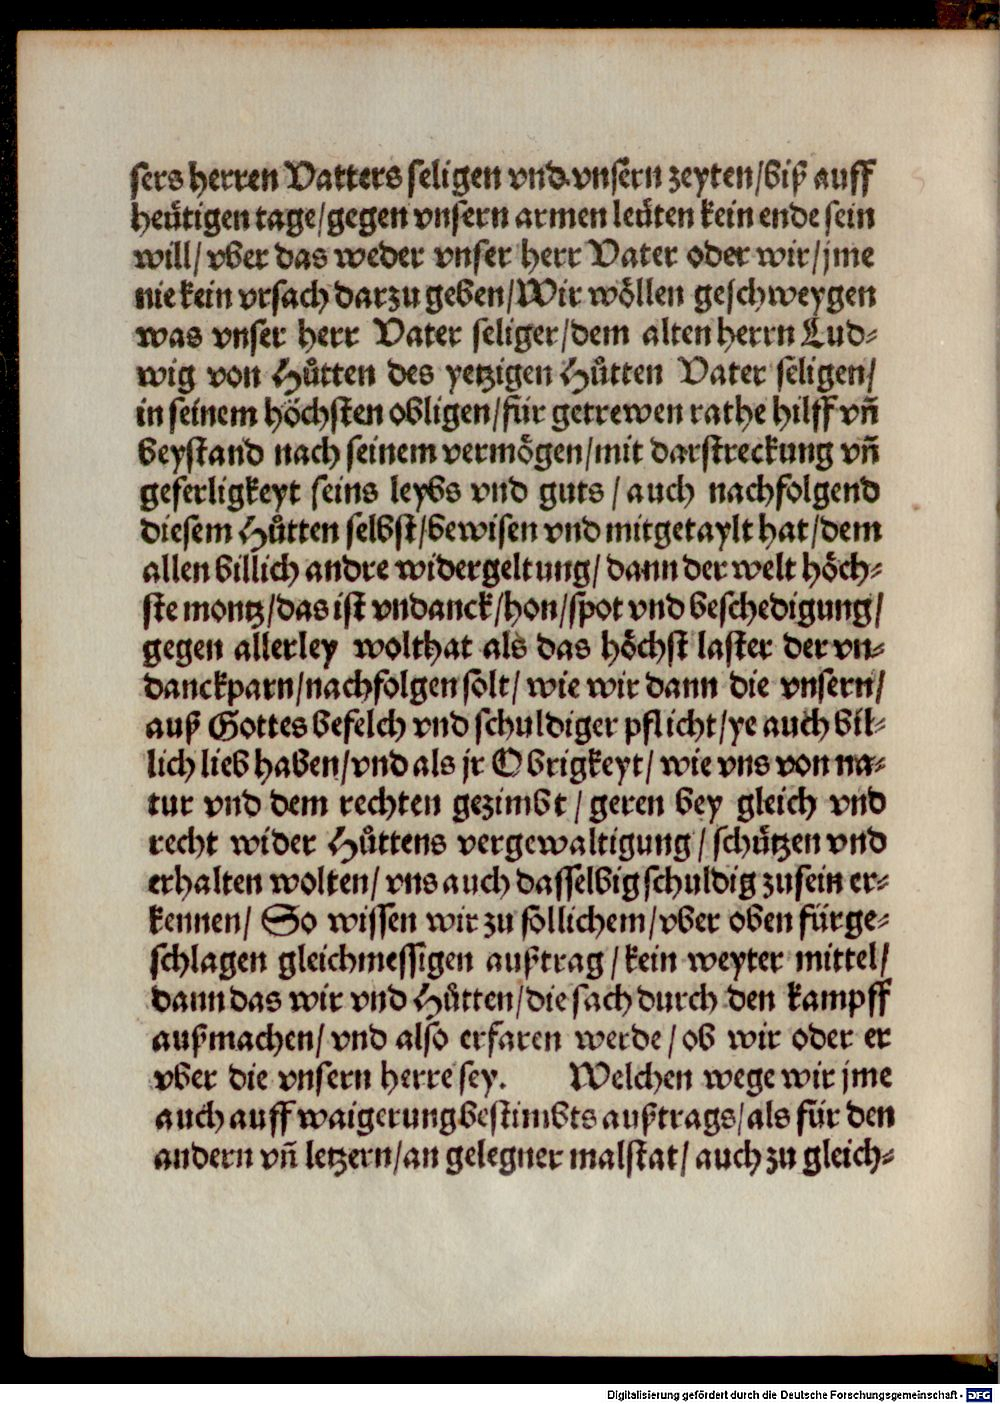 sers herren Vatters seligen vnd vnsern zeyten/biß auff
heütigen tage/gegen vnsern armen leüten kein ende sein
will/ vber das weder vnser herr Vater oder wir/jme
nie kein vrsach darzu geben/Wir wöllen geschweygen
was vnser herr Vater seliger/dem alten herrn Lud⸗
wig von Hůtten des yetzigen Hůtten Vater seligen/
in seinem höchsten obligen/für getrewen rathe hilff vñ
beystand nach seinem vermögen/mit darstreckung vñ
geferligkeyt seins leybs vnd guts/ auch nachfolgend
diesem Hůtten selbst/bewisen vnd mitgetaylt hat/dem
allen billich andre widergeltung/ dann der welt höch⸗
ste montz/das ist vndanck/hon/spot vnd beschedigung/
gegen allerley wolthat als das höchst laster der vn⸗
danckparn/nachfolgen solt/ wie wir dann die vnsern/
auß Gottes befelch vnd schuldiger pflicht/ye auch bil⸗
lich lieb haben/vnd als jr Obrigkeyt/ wie vns von na⸗
tur vnd dem rechten gezimbt/ geren bey gleich vnd
recht wider Hůttens vergewaltigung/ schützen vnd
erhalten wolten/ vns auch dasselbig schuldig zusein er⸗
kennen/ So wissen wir zu söllichem/vber oben fürge⸗
schlagen gleichmessigen außtrag/kein weyter mittel/
dann das wir vnd Hůtten/die sach durch den kampff
außmachen/ vnd also erfaren werde/ ob wir oder er
vber die vnsern herre sey. Welchen wege wir jme
auch auff waigerung bestimbts außtrags/als für den
andern vñ letzern/an gelegner malstat/ auch zu gleich⸗
Digitalisierung gefördert durch die Deutsche Forschungsgemeinschaft - DFG